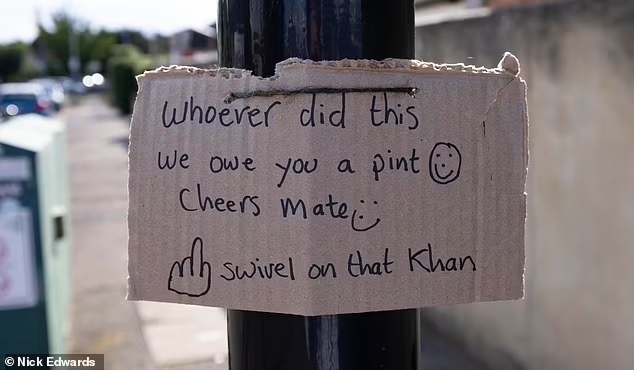 Whoever did this
we owe you a pint
Cheers Mate
swivel on that Khan
© Nick Edwards